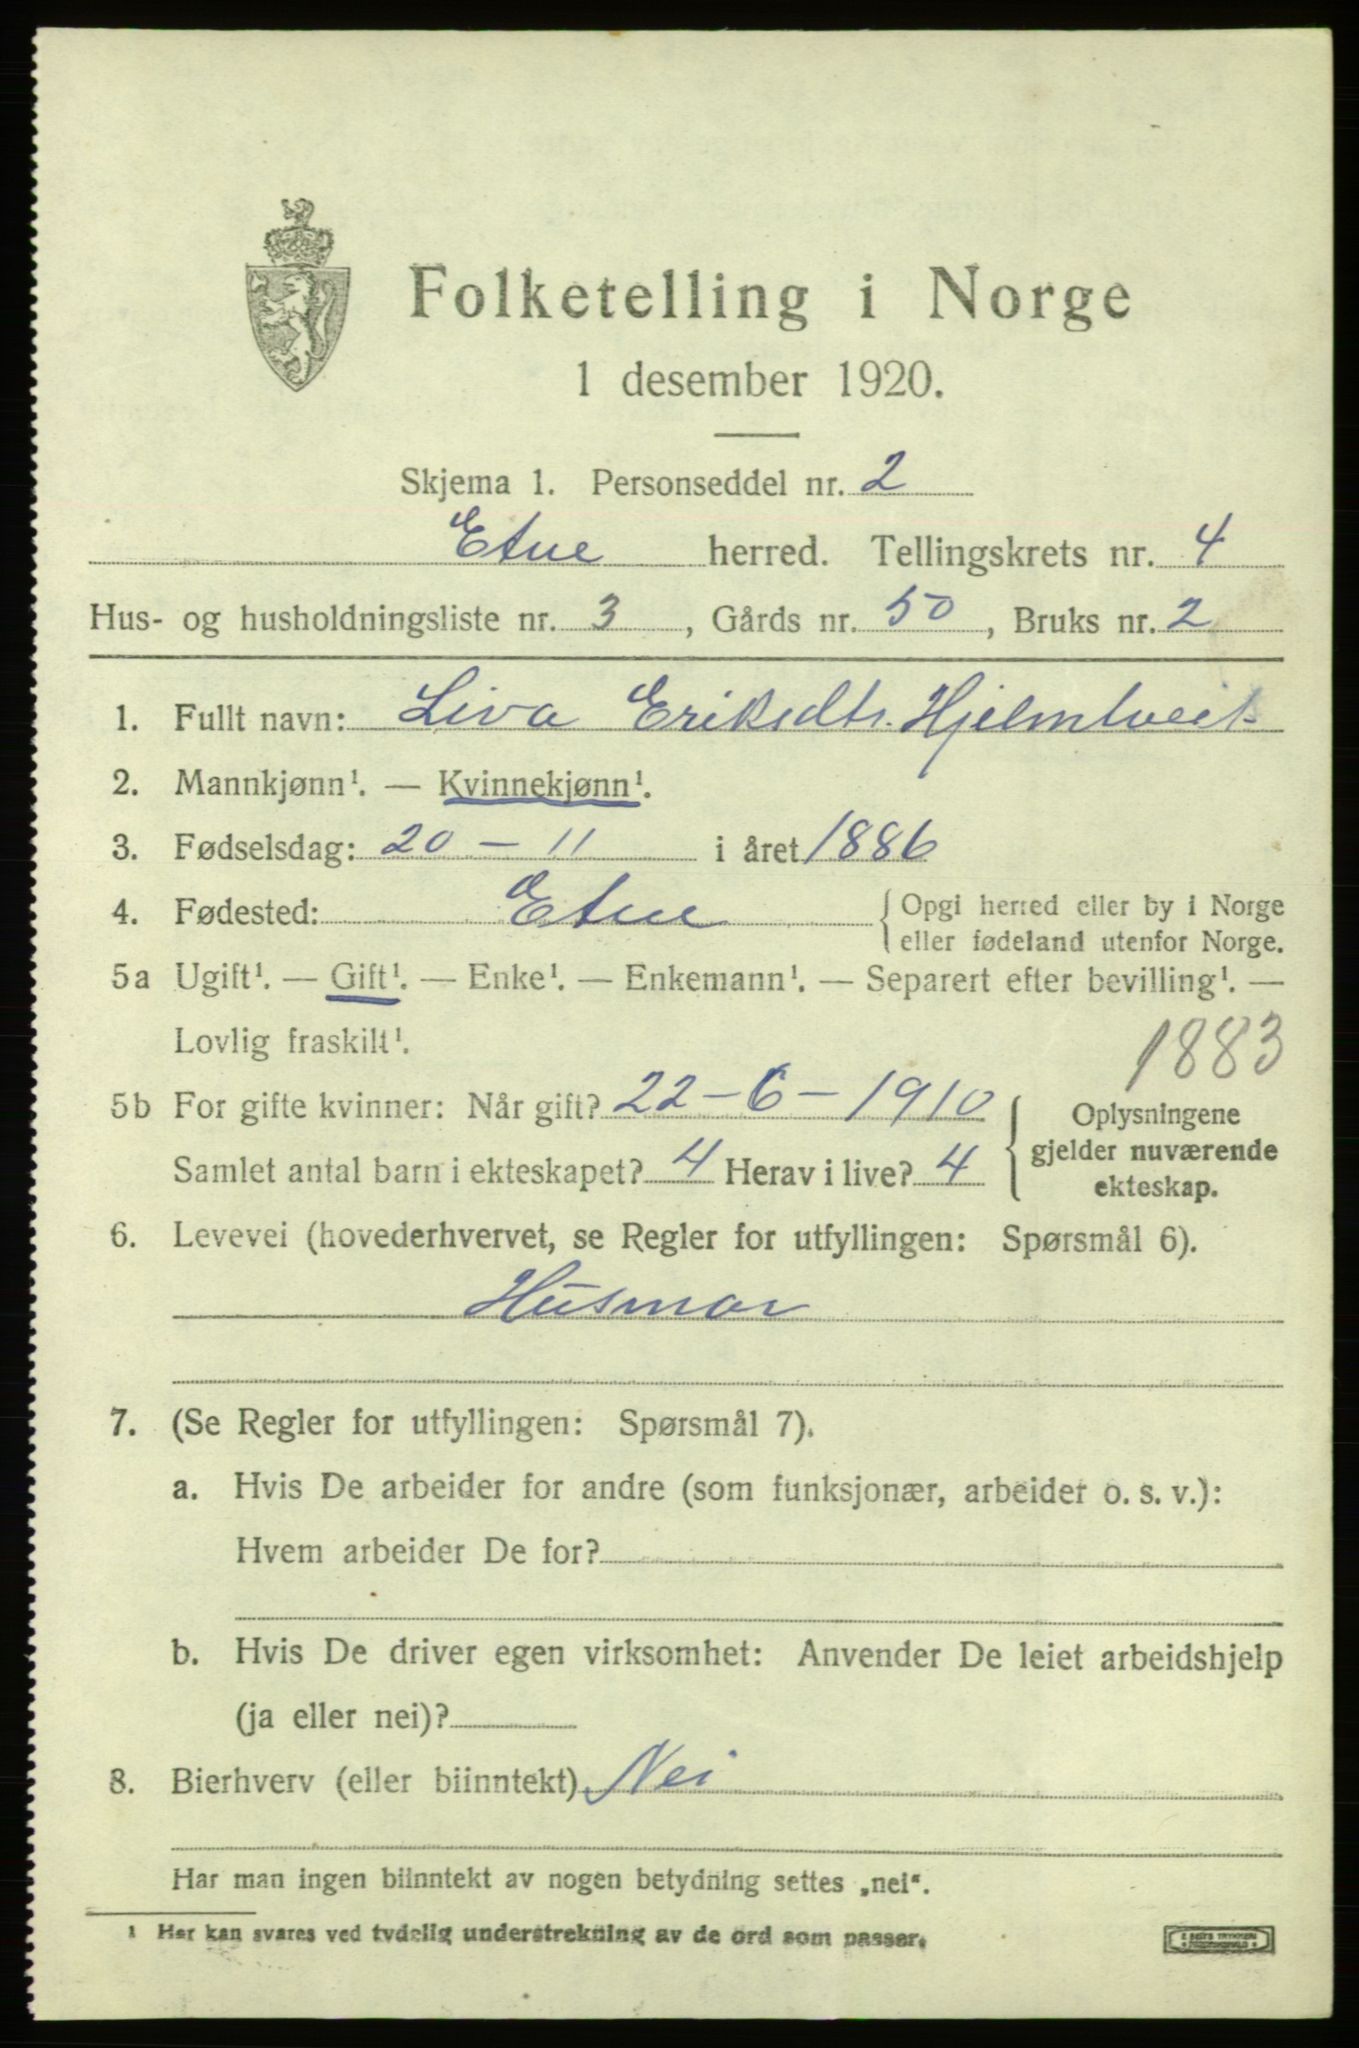 Folketelling i Norge
1 desember 1920.
Skjema 1. Personseddel nr. 2
Etne herred. Tellingskrets nr. 4
Hus- og husholdningsliste nr. 3, Gårds nr. 50, Bruks nr. 2
1. Fullt navn: Liva Eriksdtr. Hjelmtveit
2. Mannkjønn¹. — Kvinnekjønn¹.
3. Fødselsdag: 20 – 11 i året 1886
4. Fødested: Etne { Opgi herred eller by i Norge
eller fødeland utenfor Norge.
5a Ugift¹. — Gift¹. — Enke¹. — Enkemann¹. — Separert efter bevilling¹. —
Lovlig fraskilt¹.
1883
5b For gifte kvinner: Når gift? 22–6–1910
Samlet antal barn i ekteskapet? 4 Herav i live? 4
{ Oplysningene
gjelder nuværende
ekteskap.
6. Levevei (hovederhvervet, se Regler for utfyllingen: Spørsmål 6).
Husmor
7. (Se Regler for utfyllingen: Spørsmål 7).
a. Hvis De arbeider for andre (som funksjonær, arbeider o. s. v.):
Hvem arbeider De for?
b. Hvis De driver egen virksomhet: Anvender De leiet arbeidshjelp
(ja eller nei)?
8. Bierhverv (eller biinntekt) Nei
Har man ingen biinntekt av nogen betydning settes „nei“.
¹ Her kan svares ved tydelig understrekning av de ord som passer.